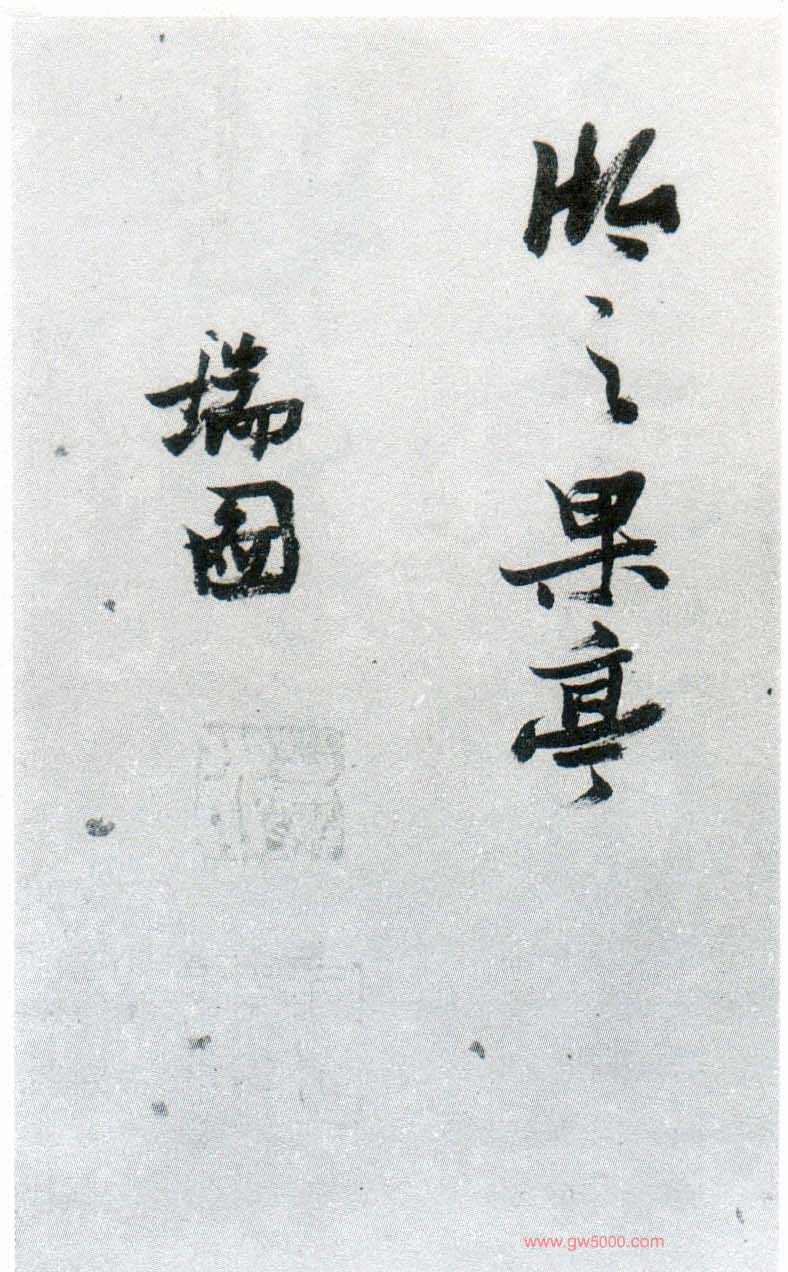 於之果亭
瑞圖
www.gw5000.com